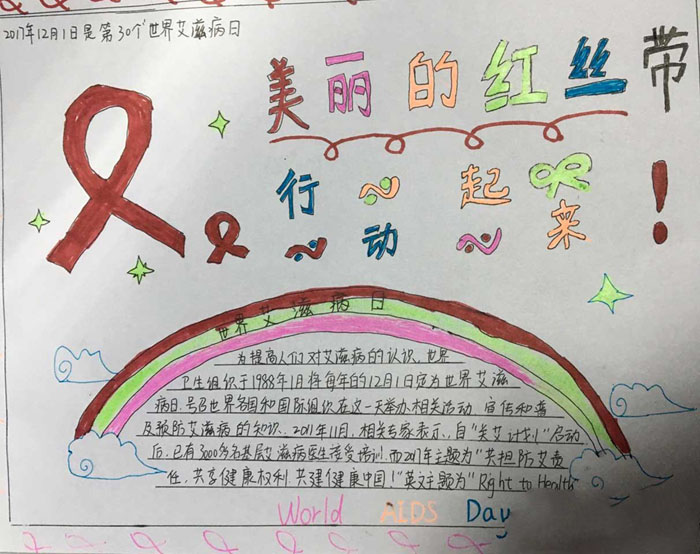 2017年12月1日是第30个世界艾滋病日
美丽的红丝带
行动起来!
世界艾滋病日
为提高人们对艾滋病的认识,世界
卫生组织于1988年1月将每年的12月1日定为世界艾滋
病日,号召世界各国和国际组织在这一天举办相关活动,宣传和普
及预防艾滋病的知识。2011年11月,相关专家表示,自"关艾计划"启动
后,已有3000多名基层艾滋病医生接受培训.而2017年主题为"共担防艾责
任,共享健康权利,共建健康中国!"英文主题为"Right to Health
World AIDS Day